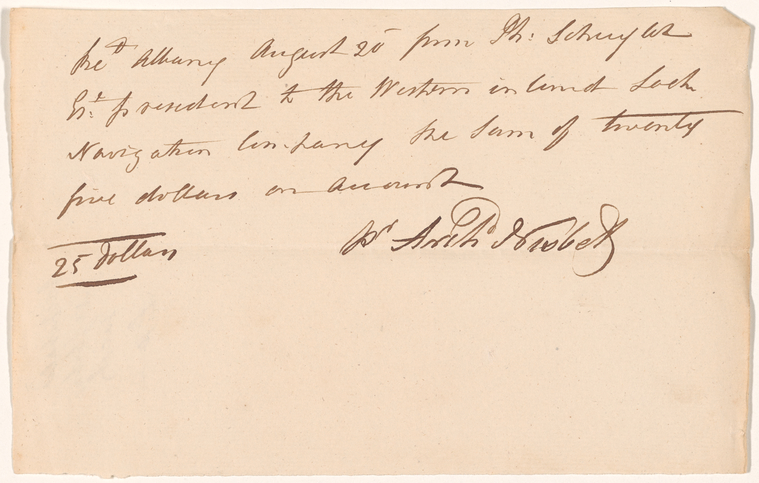 Recd Albany August 20 from Ph: Schuyler
Esr. president to the Western inland Lock
Navigation Company the Sum of twenty
five dollars on Account
25 Dollars
pr Archd Nisbett